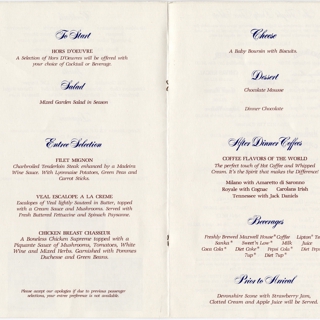 To Start
HORS D'OEUVRE
A Selection of Hors D'Oeuvres will be offered with
your choice of Cocktail or Beverage.
Salad
Mixed Garden Salad in Season
Entree Selection
FILET MIGNON
Charbroiled Tenderloin Steak enhanced by a Madeira
Wine Sauce. With Lyonnaise Potatoes, Green Peas and
Carrot Sticks.
VEAL ESCALOPE A LA CREME
Escalopes of Veal lightly Sauteed in Butter, topped
with a Cream Sauce and Mushrooms. Served with
Fresh Buttered Fettuccine and Spinach Peymonte.
CHICKEN BREAST CHASSEUR
A Boneless Chicken Supreme topped with a
Piquante Sauce of Mushrooms, Tomatoes, White
Wine and Mixed Herbs. Garnished with Pommes
Duchesse and Green Beans.
Please accept our apologies if due to previous passenger
selections, your entree preference is not available.
Cheese
A Baby Boursin with Biscuits.
Dessert
Chocolate Mousse
Dinner Chocolate
After Dinner Coffees
COFFEE FLAVORS OF THE WORLD
The perfect touch of Hot Coffee and Whipped
Cream. It's the Spirit that makes the Difference!
Milano with Amaretto di Saronno
Royale with Cognac Carolans Irish
Tennessee with Jack Daniels
Beverages
Freshly Brewed Maxwell House® Coffee Lipton® Tea
Sanka® Sweet'n Low® Milk Juice
Coca Cola® Diet Coke® Pepsi Cola® Diet Pepsi®
7up® Diet 7up®
Prior to Arrival
Devonshire Scone with Strawberry Jam,
Clotted Cream and Apple Juice will be Served.